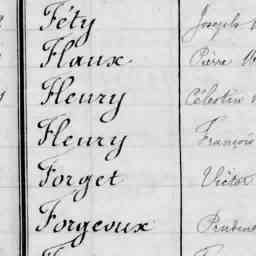 Féty Joseph
Flaux Pierre
Fleury Célestin
Fleury François
Forget Victor
Forgeoux